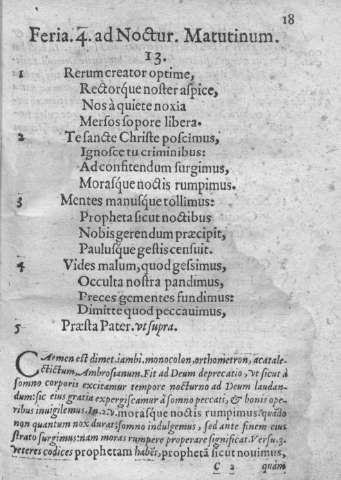 18
Feria. 4. ad Noctur. Matutinum.
13.
1 Rerum creator optime,
Rectorque noster aſpice,
Nos à quiete noxia
Merſos ſopore libera.
2 Te ſancte Chriſte poſcimus,
Ignoſce tu criminibus:
Ad confitendum ſurgimus,
Moraſque noctis rumpimus.
3 Mentes manuſque tollimus:
Propheta ſicut noctibus
Nobis gerendum præcipit,
Pauluſque geſtis cenſuit.
4 Vides malum, quod geſſimus,
Occulta noſtra pandimus,
Preces gementes fundimus:
Dimitte quod peccauimus,
5 Præſta Pater. vt ſupra.
CArmen eſt dimet. iambi. monocolon, orthometron, acatale-
ctticum, Ambroſianum. Fit ad Deum deprecatio, vt ſicut à
ſomno corporis excitamur tempore nocturno ad Deum laudan-
dum: ſic eius gratia expergiſcamur à ſomno peccati, & bonis ope-
ribus inuigilemus. moraſque noctis rumpimus: quãdo
non quantum nox durat: ſomno indulgemus, ſed ante finem eius
ſtrato ſurgimus: nam moras rumpere properare ſignificat. Verſu. 3.
veteres codices prophetam habẽt, prophetã ſicut nouimus,
C 2 quàm